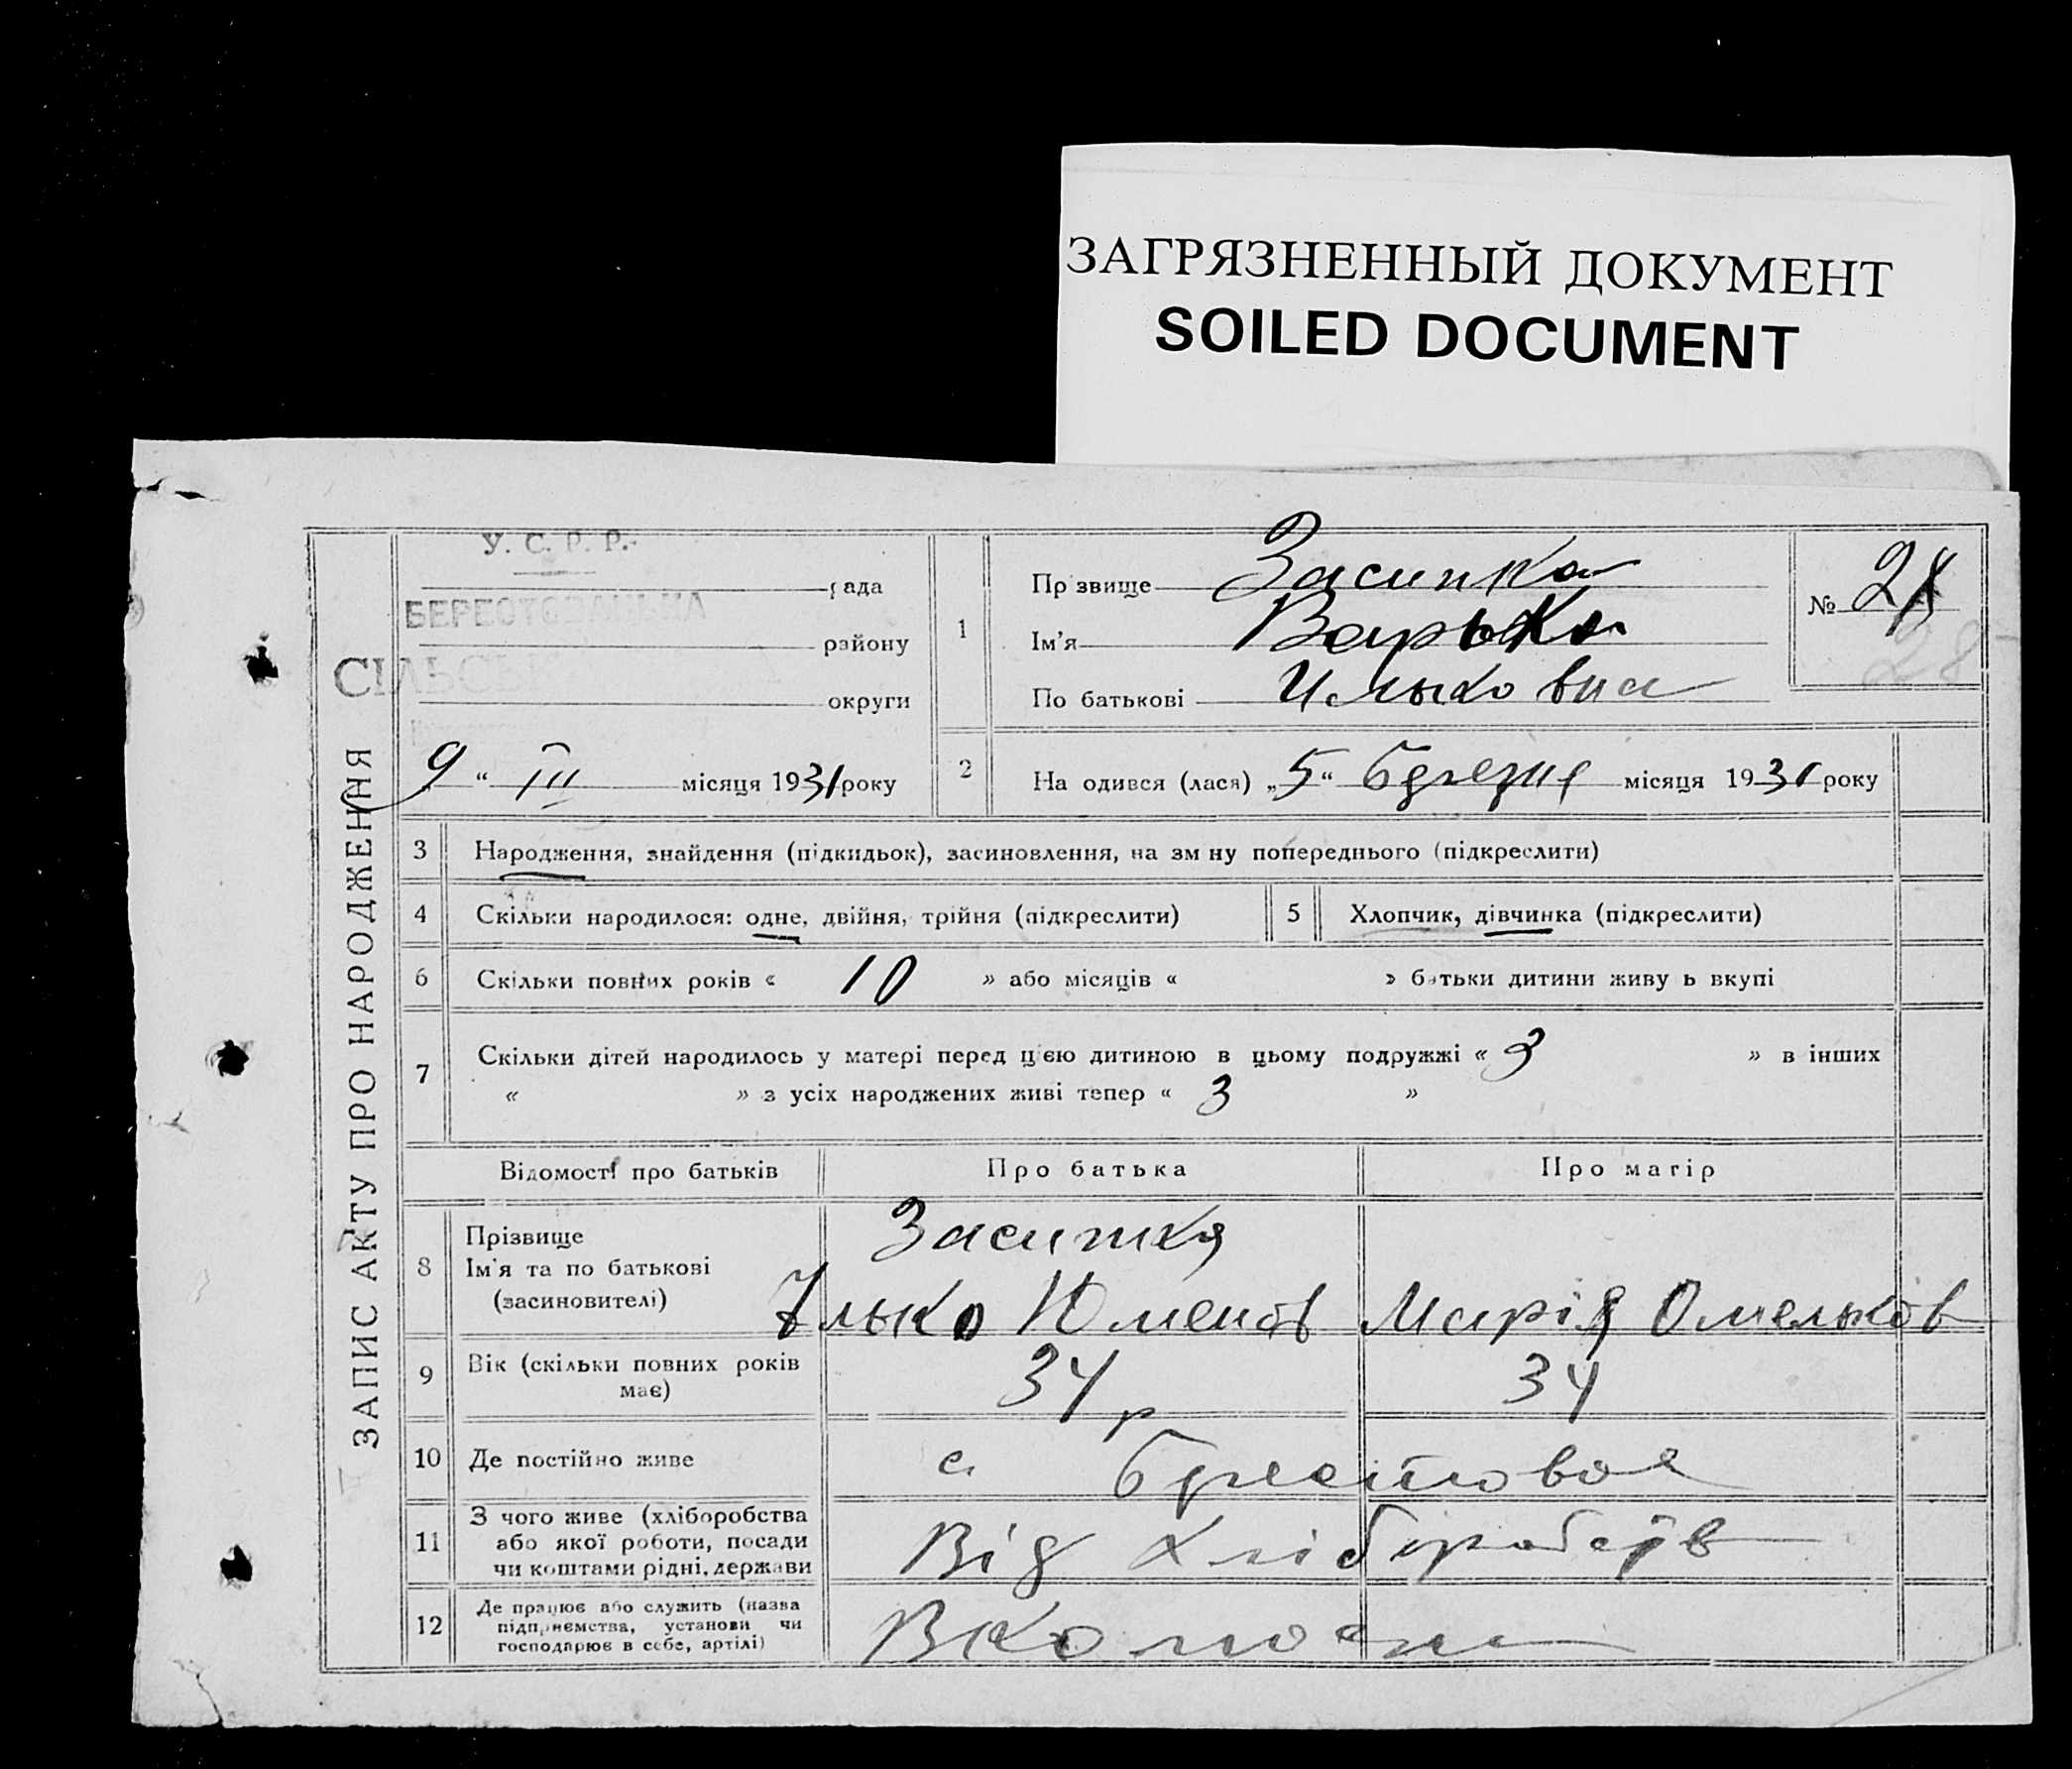 ЗАГРЯЗНЕННЫЙ ДОКУМЕНТ
SOILED DOCUMENT
ЗАПИС АКТУ ПРО НАРОДЖЕННЯ
У. С. Р. Р.
рада
району
СІЛЬСЬК
округи
9 " III місяця 1931 року
1
Пр звище Засипка
Ім'я Варька
По батькові Ильковна
№ 28
28
2 На одився (лася) „5" березня місяця 1931 року
3 Народження, знайдення (підкидьок), засиновлення, на зм ну попереднього (підкреслити)
4 Скільки народилося: одне, двійня, трійня (підкреслити) 5 Хлопчик, дівчинка (підкреслити)
6 Скільки повних років « 10 » або місяців « » батьки дитини живу ь вкупі
7 Скільки дітей народилось у матері перед цією дитиною в цьому подружжі « 3 » в інших
« » з усіх народжених живі тепер « 3 »
Відомості про батьків Про батька Про матір
8 Прізвище Засипка
Ім'я та по батькові
(засиновителі) Ілько Юменов Марія Омельков
9 Вік (скільки повних років має) 34 р 34
10 Де постійно живе с. Берестовое
11 З чого живе (хліборобства
або якої роботи, посади
чи коштами рідні, держави Від хлiборобств
12 Де працює або служить (назва
підприємства, установи чи
господарює в себе, артілі)